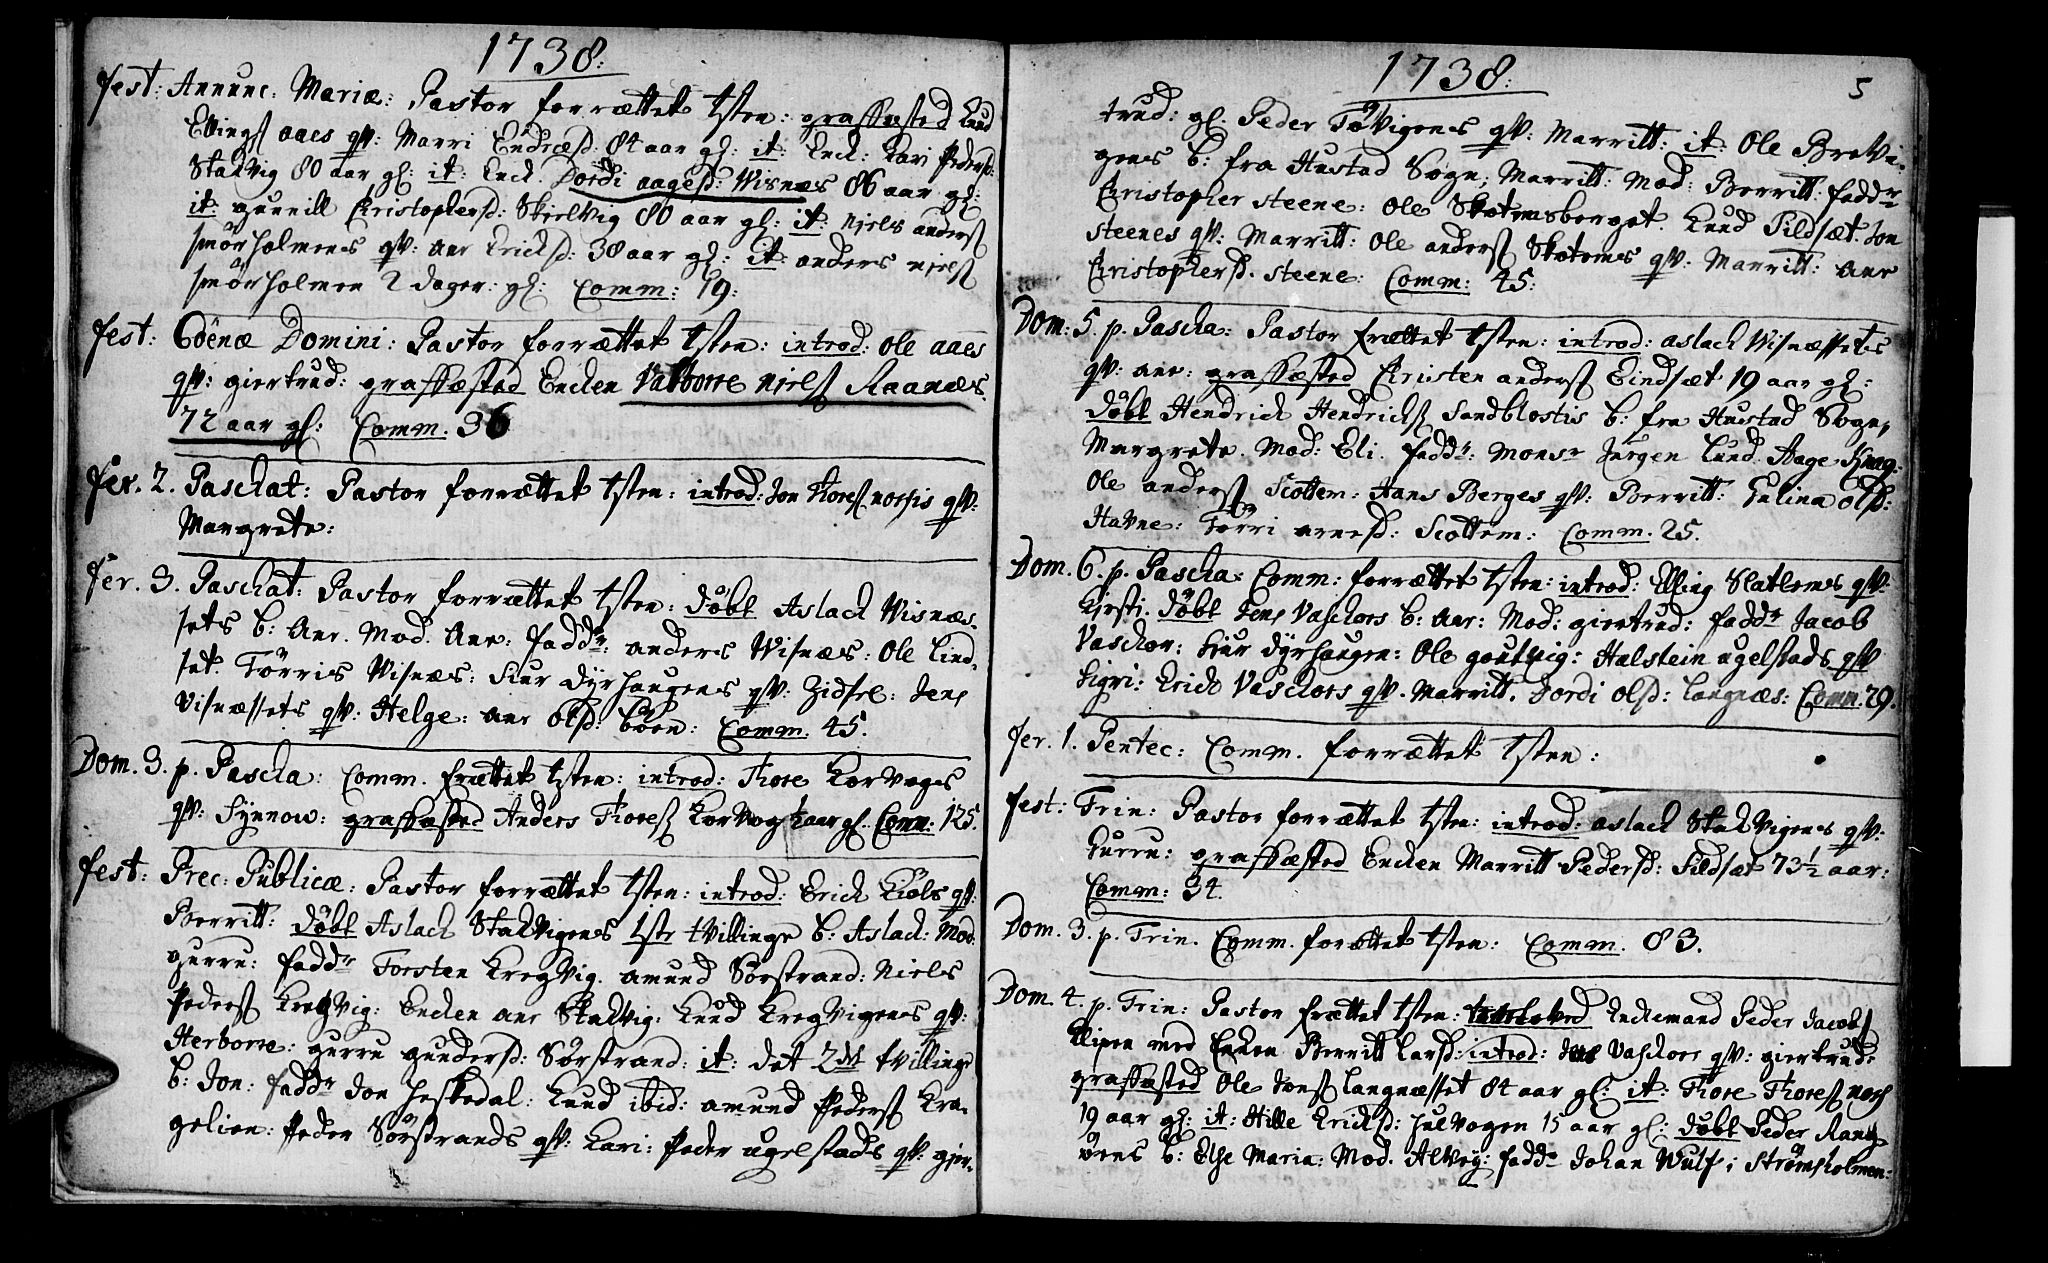 1738:
fest: Annunc: Mariæ: Pastor forrættet tsten: graffæsted Knud
Ellingsß aaes qv: Marri Endresd: 84 aar gl: it: Enck: Kari Pedersd:
Stakvig 80 aar gl: it: Enck. Dordi aagesd: Wisnæs 86 aar gl:
it: gunnill Christophersd: Skielvig 80 aar gl: it: niels andersß
smörholmens qv: ane Ericksd: 38 aar gl: it: anders nielsß
smörholmen 2 dager: gl: Comm: 19:
fest: Coenæ Domini: Pastor forrættet tsten: introd: ole aaes
qv: giertrud: graffæsted Encken Valborre nielsß Raanæs.
72 aar gl: Comm. 36
fer. 2. Paschat: Pastor forrættet tsten: introd: Jon Thoresß norsis qv:
Margrete:
fer. 3. Paschat: Pastor forrættet tsten: döbt Aslack Wisnæs-
sets b: Ane. Mod. Ane: fadd: anders Wisnæs: Ole Lind-
set. Törris Wisnæs: Siur dyrhaugens qv: Zidsel: Jens
Visnæssets qv: Helge: ane olsd: böen: Comm. 45.
Dom. 3. p. Pascha: Comm. frættet tsten: introd: Thore Korvogs
qv: Synnow: graffæsted Anders Thoresß Korvog ½ aar gl. Comm: 125.
fest: Prec: Publicæ: Pastor forrættet tsten: introd: Erick Kiöls qv:
Berritt: döbt Aslack Stakvigens 1ste tvillinge b: Aslack: Mod.
gurru: fadd: Torsten Kregvig. amund Sörstrand: Niels
Pedersß Kregvig: Encken ane Stakvig: Knud Kregvigens qv:
Herborre: gurru gundersd: Sörstrand: it: det 2det tvillinge
b: Jon: fadd: Jon Heskedal: Knud ibid: amund Pedersß Kra-
gelien: Peder Sörstrands qv: Kari: Peder ugelstads qv: gjer-
1738:
5
trud: gl: Peder Tövigens qv: Marritt: it: Ole Brevi-
gens b: fra Hustad Sogn; Marritt: Mod: Berritt: fadd:
Christopher steene: Ole Skotemsberget. Knud Sildsæt. Jon
steenes qv: Marritt: Ole andersß Skotems qv: Marritt: Ane
Christophersd. steene: Comm: 45:
Dom: 5. p. Pascha: Pastor frættet tsten: introd: aslack Wisnæssets
qv: ane: graffæsted Christen andersß Eindsæt 19 aar gl:
döbt Hendrick Hendricksß Sandblostis b: fra Hustad Sogn,
Margrete. Mod: Eli. fadd: Monsr Jurgen Lund. Aage Knag:
Ole andersß Scottem: Hans Berges qv: Berritt: Gulina olsd:
Havne: Törri arnesd: Scottem: Comm. 25.
Dom. 6. p. Pascha: Comm: forrættet tsten: introd: Elling Slatlems qv:
Kirsti. döbt Jens Vaschors b: ane: Mod: giertrud: fadd: Jacob
Vaschor: Siur dyrhaugen: Ole goutvig: Halstein ugelstads qv
Sigri: Erick Vaschors qv. Marritt. Dordi olsd: Langnæs: Comm. 29.
fer. 1. Pentec: Comm. forrættet tsten:
fest: Trin: Pastor forrættet tsten: introd: aslack Stakvigens qv:
Gurru: graffæsted Encken Marritt Pedersd: Sildsæt 73½ aar:
Comm: 34.
Dom. 3. p. Trin. Comm. forættet tsten: Comm. 83.
Dom. 4. p. Trin: Pastor frættet tsten: Enckemand Peder Jacobsß
med Encken Berritt Larsd: introd: Jens Vaschors qv: giertrud:
graffæsted Ole Jonsß Langnæsset 84 aar gl: it: Thore Thoresß
19 aar gl: it: Hille Ericksd: Julvogen 15 aar gl: döbt Peder Rang-
öens b: Else Maria: Mod. Alvey: fadd: Johan Wulf i Strömsholmen: